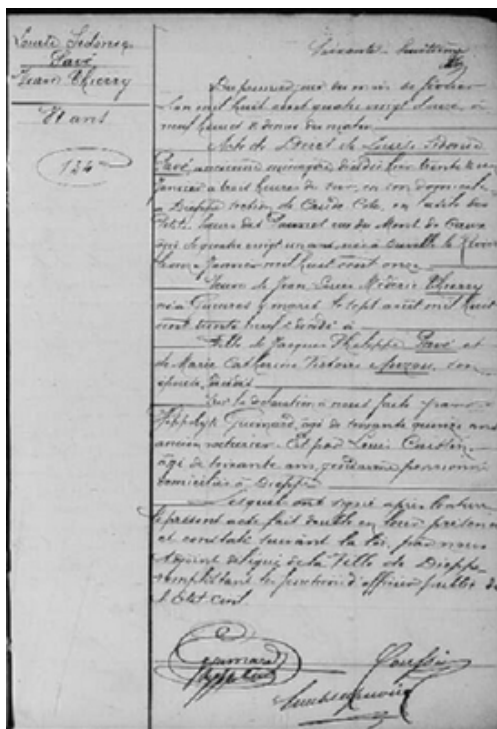 Louise Sidonie
Pavé
Veuve Thierry
81 ans
134
Soixante huitième
Du premier jour du mois de février
L'an mil huit cent quatre vingt douze, à
neuf heures & demie du matin
Acte de Décès de Louise Sidonie
Pavé, ancienne ménagère, décédée hier trente & un
Janvier à huit heures du soir, en son domicile
à Dieppe section de Caude Cote, en l'asile des
Petites Sœurs des Pauvres rue du Mont de Caux
âgée de quatre vingt un ans, née à le
Janvier mil huit cent onze
Veuve de Jean Louis Médéric Thierry
né à mariés le sept août mil huit
cent trente neuf & décédé à
Fille de Jacques Philippe Pavé et
de Marie Catherine Victoire son
épouse, décédés
Sur la déclaration à nous faite par
Hippolyte Guimard, âgé de soixante quinze ans
ancien Et par Louis
âgé de soixante ans, gendarme pensionné
domiciliés à Dieppe
Lesquels ont signé après lecture
le présent acte fait double en leur présence
et constaté suivant la loi, par nous
Adjoint délégué de la Ville de Dieppe
remplissant les fonctions d'officier public de
l'Etat civil.
guimard
hippolite